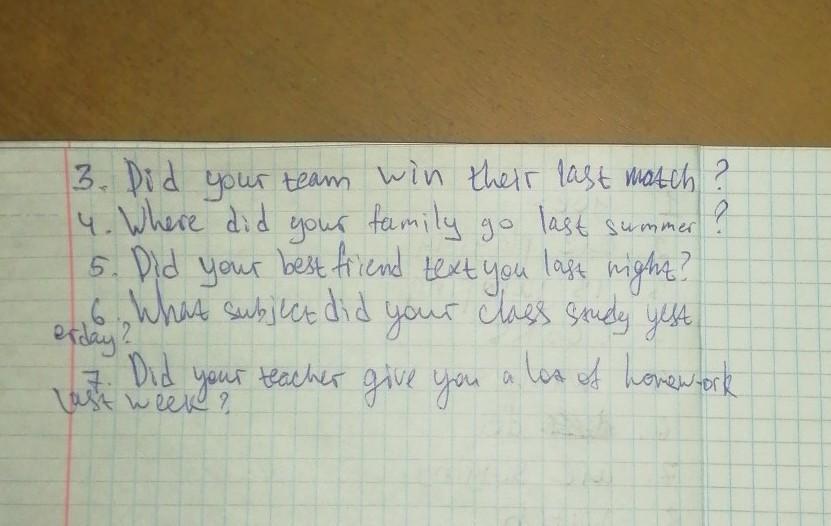 3. Did your team win their last match ?
4. Where did your family go last summer ?
5. Did your best friend text you last night?
6. What subject did your class study yest
erday?
7. Did your teacher give you a lot of homework
last week?